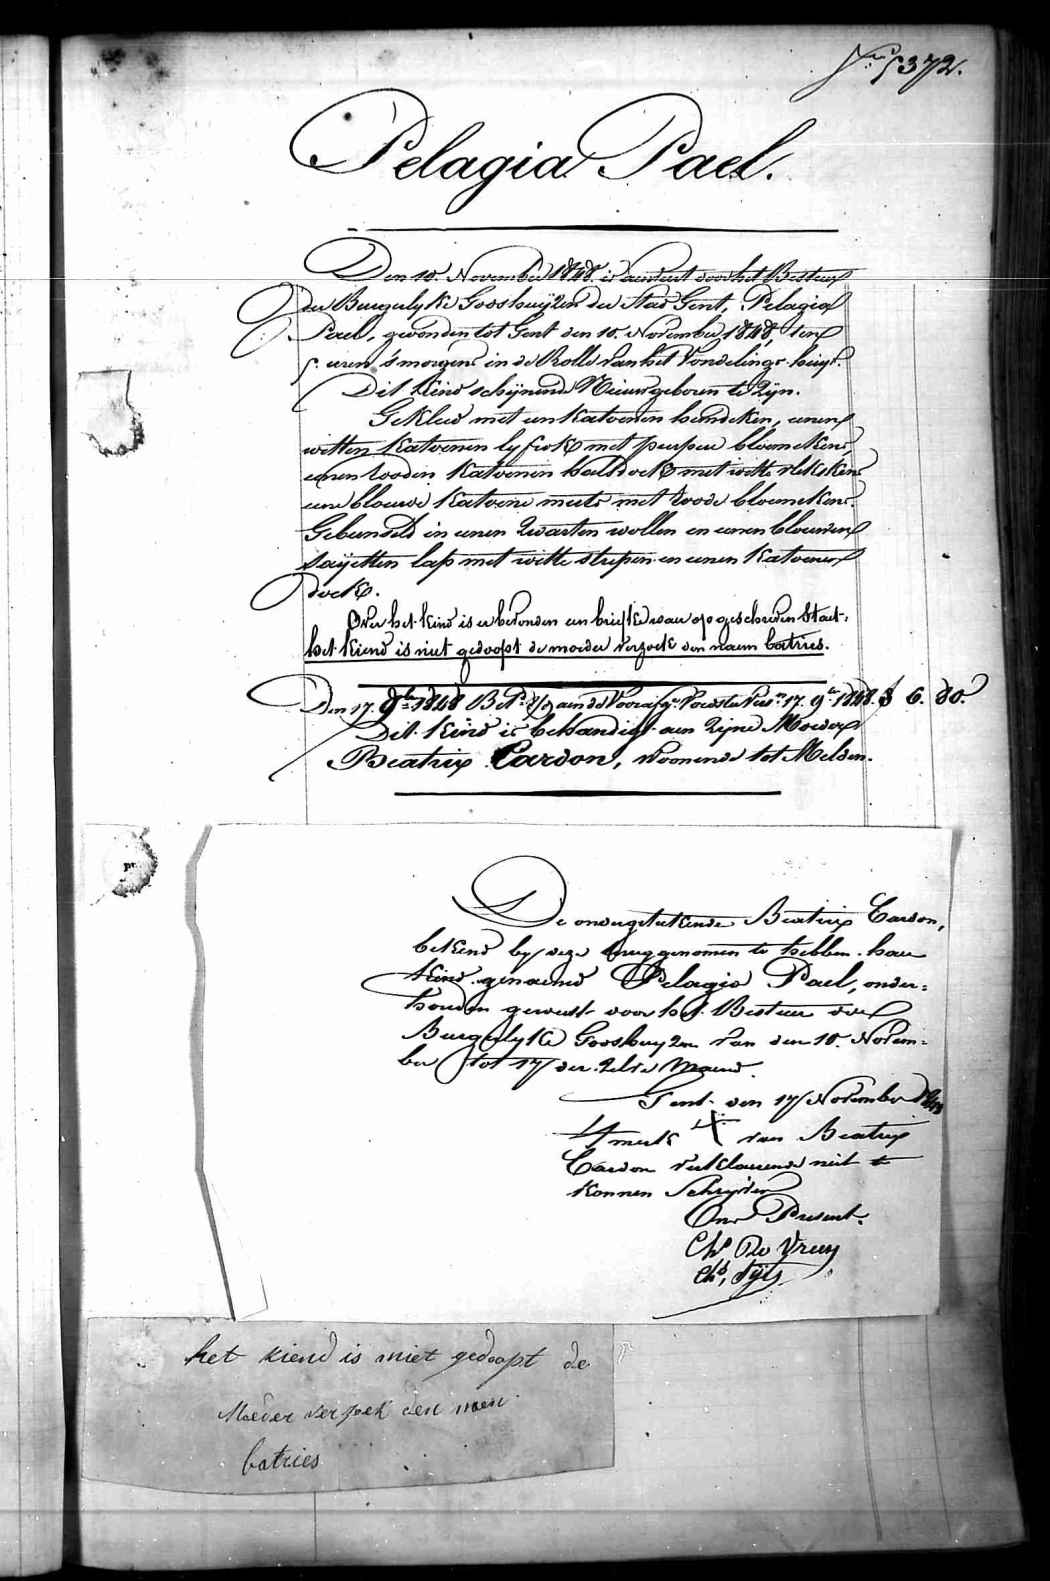 Nr. 5372.
Pelagia Pael.
Den 10. November 1848. is aenveert door het Bestuer
der Burgerlyke Godshuijzen der Stad Gent, Pelagia
Pael, gevonden tot Gent den 10. November 1848, ten
5. uren 's morgens in de Rolle van het Vondelings-huijs.
Dit Kind schijnende Nieuwgeboren te Zijn.
Gekleed met een Katoenen hemdeken, eenen
witten Katoenen lyfrok met purpere bloemekens,
eenen rooden Katoenen halsdoek met witte vlekskens
eene blauwe Katoene muts met roode bloemekens.
Gebundeld in eenen Zwarten wollen en eenen blauwen
saijetten lap met witte strepen en eenen Katoenen
doek.
Over het kind is er bevonden een briefke waer op geschreven staet:
het kiend is niet gedoopt de moeder verzoekt den naem batries.
Den 17. 9bre 1848 Bet. aende Voorafg. Voedster Pens. 17. 9bre 1848. f 6. 80.
Dit kind is behandigt aen Zijne Moeder
Beatrix Cardon, Woonende tot Melden.
De ondergeteekende Beatrix Cardon,
bekend by deze terug genomen te hebben haer
kind genaemd Pelagia Pael, onder=
houden geweest door het Bestuer der
Burgerlyke Godshuyzen van den 10. Novem=
ber tot 17 der Zelve Maend.
Gent den 17 November 1848
't merk X van Beatrix
Cardon verklaerende niet te
konnen Schryven
Ons Present.
Chs De Vreeu
Chs, Tijts
het kiend is niet gedoopt de
Moeder verzoek den naem
batries